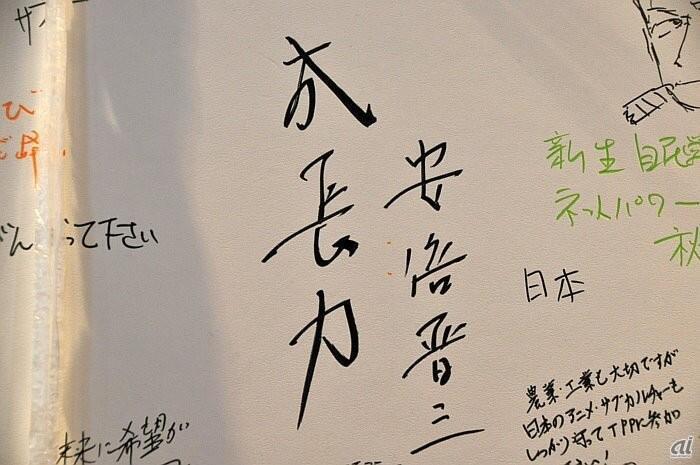 成長力
安倍晋三
って下さい
未来に希望が
新生自民党
ネットパワー
日本
農業・工業も大切ですが
日本のアニメ・サブカルチャーも
しっかり守ってTPPに参加
ai